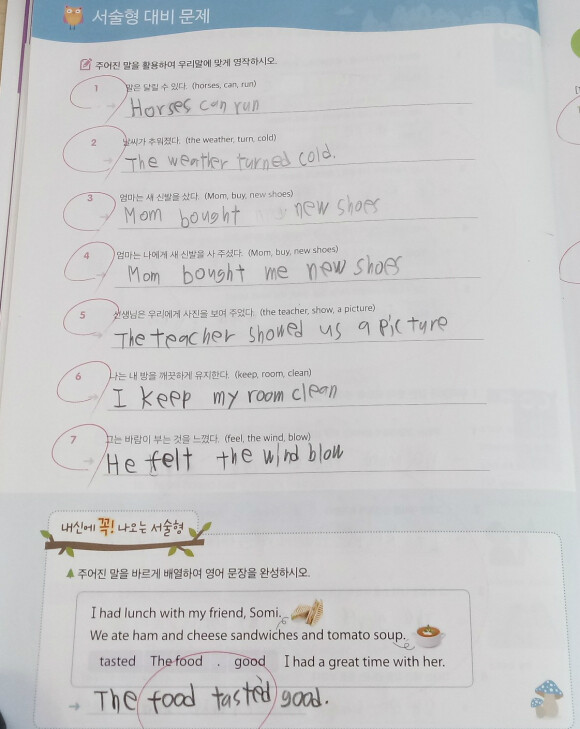 서술형 대비 문제
주어진 말을 활용하여 우리말에 맞게 영작하시오.
1 말은 달릴 수 있다. (horses, can, run)
Horses can run
2 날씨가 추워졌다. (the weather, turn, cold)
The weather turned cold.
3 엄마는 새 신발을 샀다. (Mom, buy, new shoes)
Mom bought new shoes
4 엄마는 나에게 새 신발을 사 주셨다. (Mom, buy, new shoes)
Mom bought me new shoes
5 선생님은 우리에게 사진을 보여 주었다. (the teacher, show, a picture)
The teacher showed us a picture
6 나는 내 방을 깨끗하게 유지한다. (keep, room, clean)
I keep my room clean
7 그는 바람이 부는 것을 느꼈다. (feel, the wind, blow)
He felt the wind blow
내신에 꼭! 나오는 서술형
주어진 말을 바르게 배열하여 영어 문장을 완성하시오.
I had lunch with my friend, Somi.
We ate ham and cheese sandwiches and tomato soup.
tasted The food . good I had a great time with her.
The food tasted good.